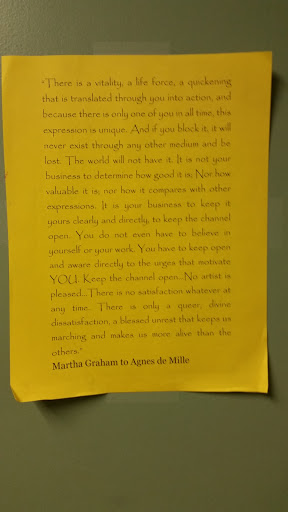 "There is a vitality, a life force, a quickening
that is translated through you into action, and
because there is only one of you in all time, this
expression is unique. And if you block it, it will
never exist through any other medium and be
lost. The world will not have it. It is not your
business to determine how good it is; Nor how
valuable it is; nor how it compares with other
expressions. It is your business to keep it
yours clearly and directly, to keep the channel
open.. You do not even have to believe in
yourself or your work. You have to keep open
and aware directly to the urges that motivate
YOU. Keep the channel open.. No artist is
pleased...There is no satisfaction whatever at
any time.. There is only a queer, divine
dissatisfaction, a blessed unrest that keeps us
marching and makes us more alive than the
others."
Martha Graham to Agnes de Mille